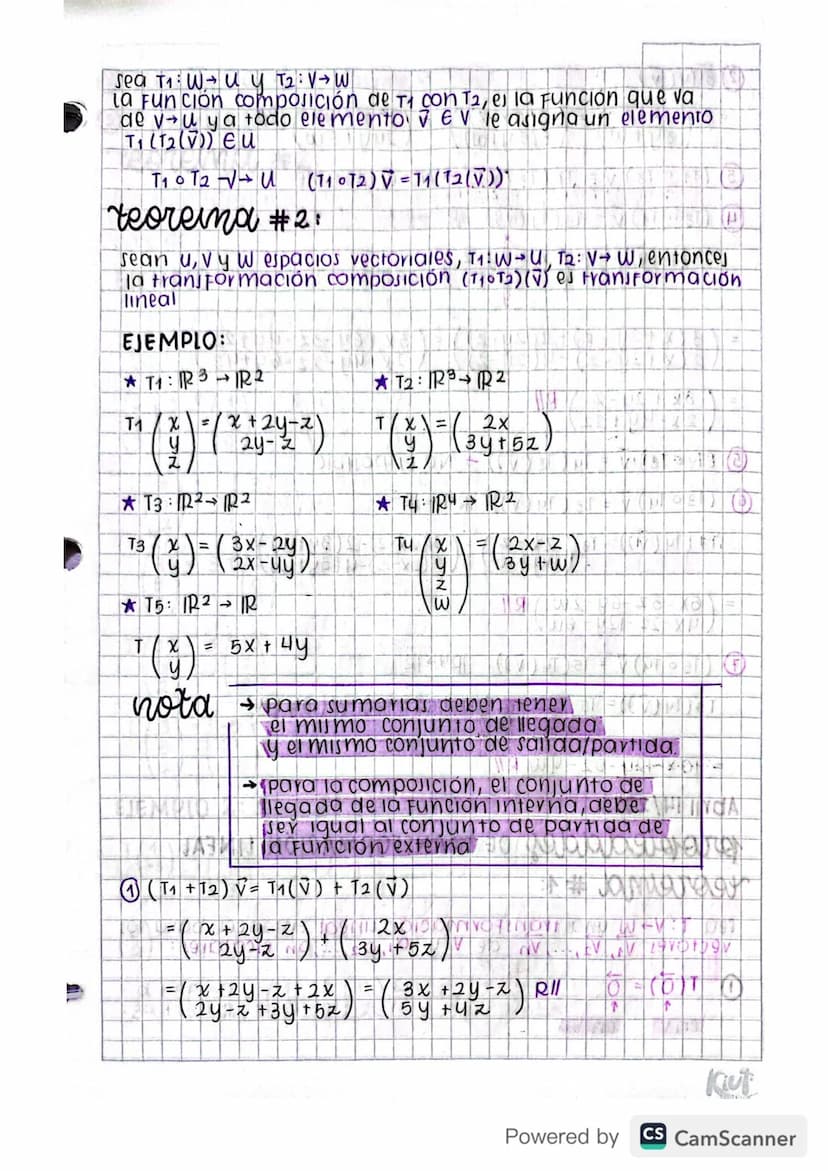 sea T1: W→ U y T2: V→ W
la función composición de T1 con T2, es la función que va
de V→ U y a todo elemento v⃗ ∈ V le asigna un elemento
T1 (T2(v⃗)) ∈ U
T1 ∘ T2 V→ U (T1∘T2) v⃗ = T1(T2(v⃗))
teorema #2:
sean U, V y W espacios vectoriales, T1: W→ U, T2: V→ W, entonces
la transformación composición (T1∘T2)(v⃗) es transformación
lineal
EJEMPLO:
★ T1: ℝ3 → ℝ2 ★ T2: ℝ3→ ℝ2
T1 (x y z) = (x + 2y-z 2y-z) T (x y z) = (2x 3y+5z)
★ T3: ℝ2→ ℝ2 ★ T4: ℝ4 → ℝ2
T3 (x y) = (3x-2y 2x-4y) T4 (x y z w) = (2x-z 3y+w)
★ T5: ℝ2 → ℝ
T (x y) = 5x + 4y
nota → para sumarlas deben tener
el mismo conjunto de llegada
y el mismo conjunto de salida/partida.
→ para la composición, el conjunto de
llegada de la función interna, debe
ser igual al conjunto de partida de
la función externa
① (T1 + T2) v⃗ = T1(v⃗) + T2(v⃗)
= (x + 2y-z 2y-z) + (2x 3y + 5z)
= (x +2y-z +2x 2y-z +3y +5z) = (3x +2y-z 5y +4z) R//
Kiut
Powered by CS CamScanner